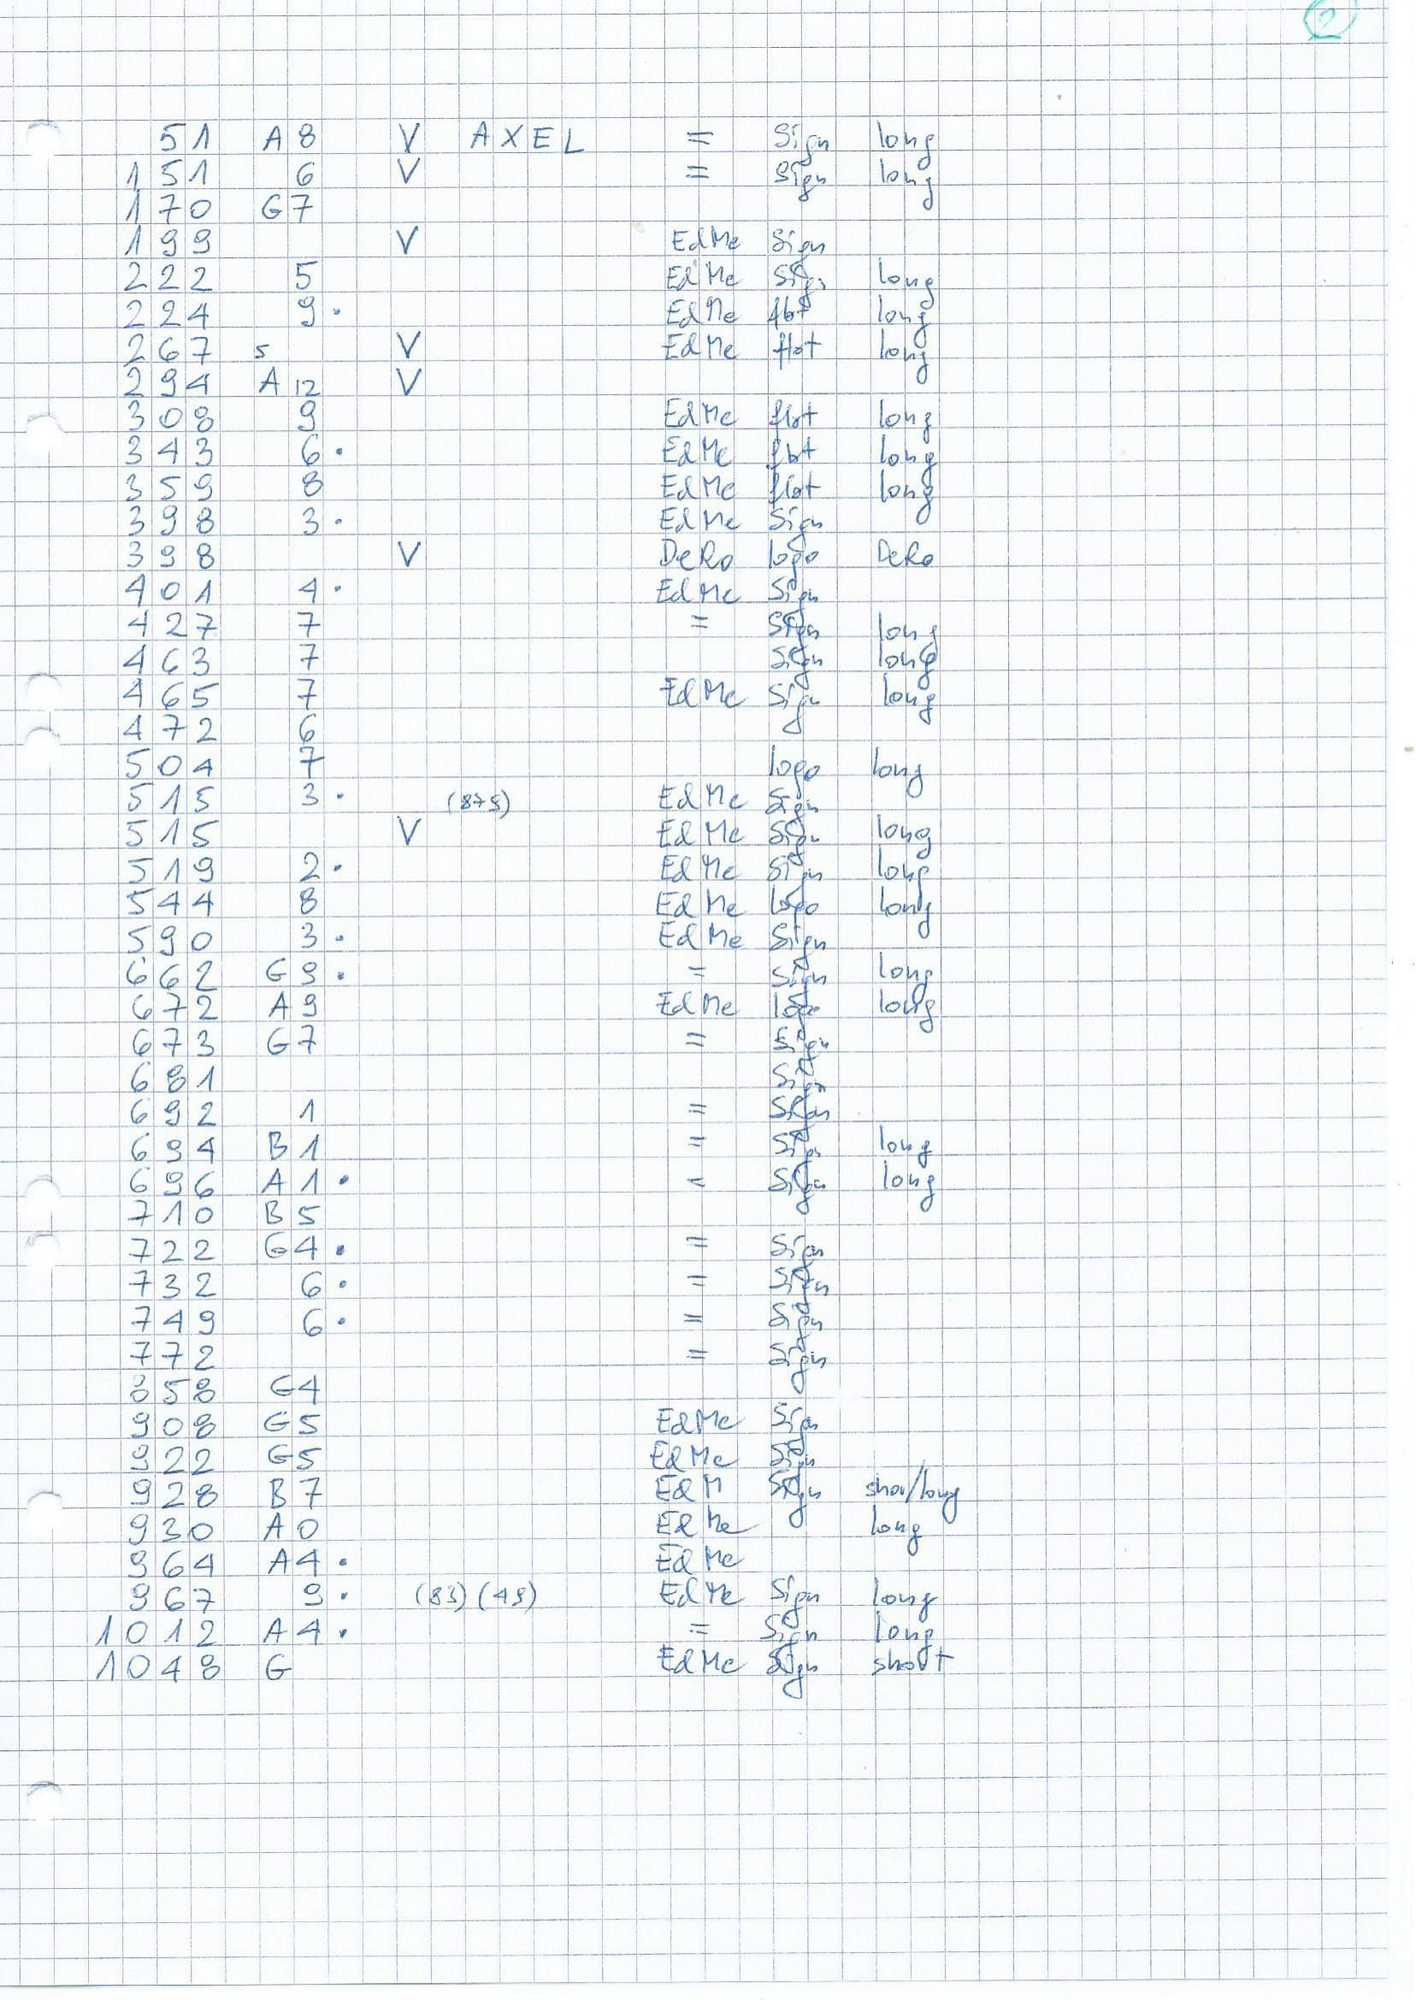 2
51 A8 V AXEL = Sign long
151 6 V = Sign long
170 G7
199 V EdMe Sign
222 5 EdMe Sign long
224 9. EdMe flot long
267 5 V EdMe flot long
294 A12 V
308 9 EdMe flot long
343 6. EdMe flot long
359 8 EdMe flot long
398 3. EdMe Sign
398 V DeRo logo DeRo
401 4. EdMe Sign
427 7 = Sign long
463 7 Sign long
465 7 EdMe Sign long
472 6
504 7 logo long
515 3. (875) EdMe Sign
515 V EdMe Sign long
519 2. EdMe Sign long
544 8 EdMe logo long
590 3. EdMe Sign
662 G9. = Sign long
672 A9 EdMe logo long
673 G7 = Sign
681 Sign
692 1 = Sign
694 B1 = Sign long
696 A1. = Sign long
710 B5
722 G4. = Sign
732 6. = Sign
749 6. = Sign
772 = Sign
858 G4
908 G5 EdMe Sign
922 G5 EdMe Sign
928 B7 EdM Sign shor/long
930 A0 EdMe long
964 A4. EdMe
967 9. (83) (49) EdMe Sign long
1012 A4. = Sign long
1048 G EdMe Sign short